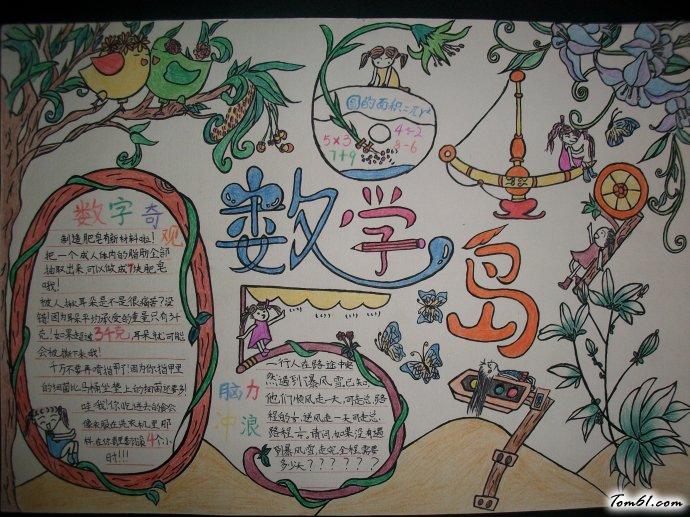 圆的面积=πr²
5×3
4÷2
7+9
8-6
数学岛
数字奇观
制造肥皂有新材料啦!
把一个成人体内的脂肪全部
抽取出来,可以做成7块肥皂
哦!
被人揪耳朵是不是很痛苦?没
错!因为耳朵平均承受的重量只有34
克!如果超过34克,耳朵就可能
会被撕下来哦!
千万不要再啃指甲了!因为你指甲里
的细菌比马桶坐垫上的细菌还要多!
哇!我!你吃进去的食会
像衣服在洗衣机里那
样在你胃里翻滚4个小
时!!!
脑力冲浪
一行人在路途中突
然遇到暴风雪,已知
他们顺风走一天,可走总路
程的,逆风走一天可走总
路程的,请问,如果没有遇
到暴风雪,走完全程需要
多少天??????
Tom61.com